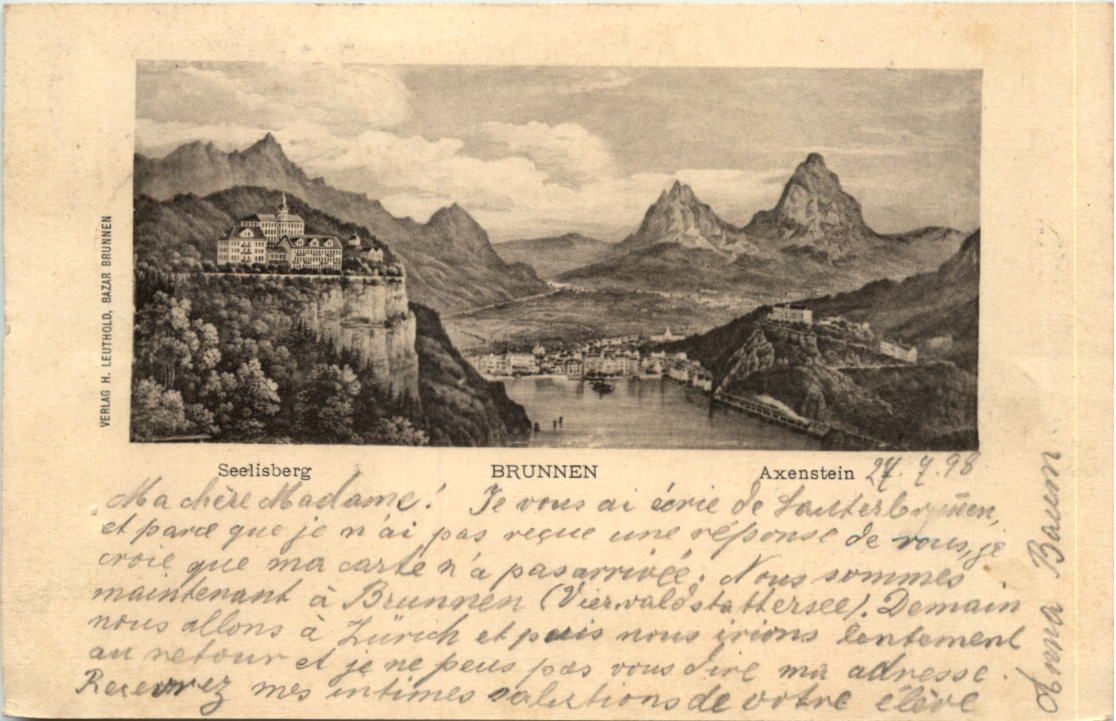 VERLAG H. LEUTHOLD, BAZAR BRUNNEN
Seelisberg BRUNNEN Axenstein 27.7.98
Ma chère Madame! Je vous ai écrie de Lauterbrunnen,
et parce que je n'ai pas reçue une réponse de vous, je
croie que ma carte n'a pas arrivée. Nous sommes
maintenant à Brunnen (Vierwaldstattersee). Demain
nous allons à Zürich et puis nous irions lentement
au retour et je ne peus pas vous dire ma adresse.
Recevrez mes intimes salutions de votre élève
Anna Baum.